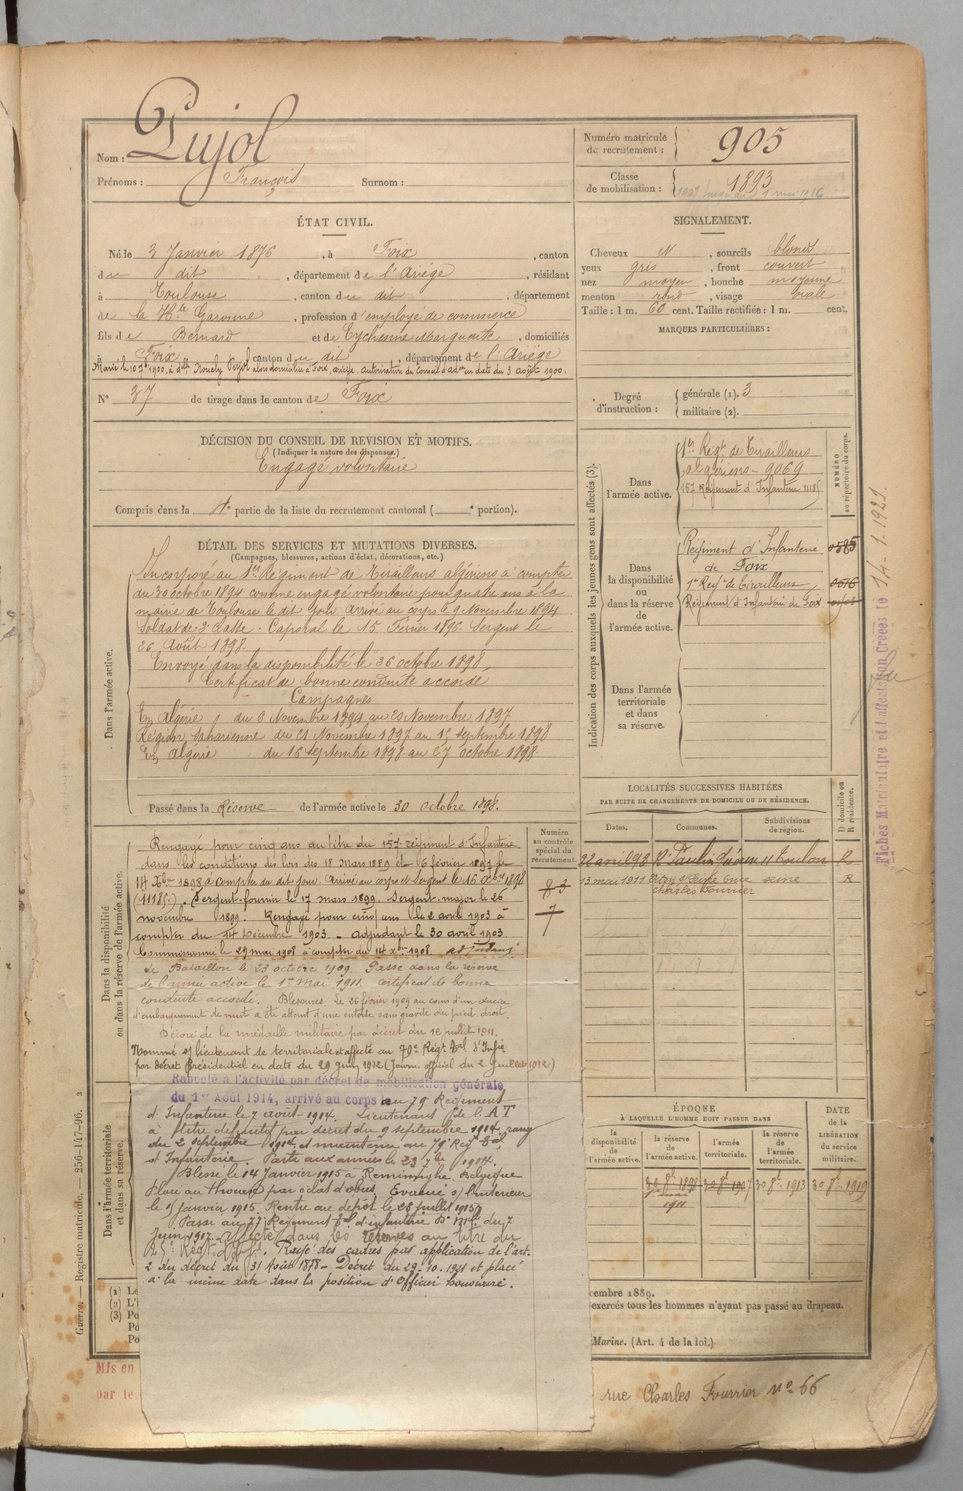 Nom : Pujol
Prénoms : François Surnom :
Numéro matricule de recrutement : 905
Classe de mobilisation : 1893
ÉTAT CIVIL.
Né le 3 Janvier 1875, à Foix, canton
du dit, département de l'Ariège, résidant
à Toulouse, canton du dit, département
de la Hte Garonne, profession d'employé de commerce
fils de Bernard et de Eychenne Marguerite, domiciliés
à Foix, canton du dit, département de l'Ariège
Marié le 10 1900, à dlle Pujol alors domiciliée à Foix, ariège. autorisation du Conseil d'adon en date du 3 août 1900.
N° 37 de tirage dans le canton de Foix
SIGNALEMENT.
Cheveux N, sourcils blonds
yeux gris, front couvert
nez moyen, bouche moyenne
menton rond, visage ovale
Taille : 1 m. 60 cent. Taille rectifiée : 1 m. cent.
MARQUES PARTICULIÈRES :
Degré d'instruction : générale (1). 3
militaire (2).
DÉCISION DU CONSEIL DE REVISION ET MOTIFS.
(Indiquer la nature des dispenses.)
Engagé volontaire
Compris dans la partie de la liste du recrutement cantonal ( e portion).
DÉTAIL DES SERVICES ET MUTATIONS DIVERSES.
(Campagnes, blessures, actions d'éclat, décorations, etc.)
Dans l'armée active.
Incorporé au 1er Régiment de Tirailleurs algériens à compter
du 30 octobre 1894 comme engagé volontaire pour quatre ans à la
mairie de Toulouse le dit jour. Arrivé au corps le 9 Novembre 1894
Soldat de 2e classe. Caporal le 15 Février 1896. Sergent le
26 Août 1898.
Envoyé dans la disponibilité le 26 octobre 1898.
Certificat de bonne conduite accordé
Campagnes
En Algérie du 6 Novembre 1894 au 20 Novembre 1897
Région saharienne du 21 Novembre 1897 au 15 septembre 1898
En Algérie du 16 septembre 1898 au 27 octobre 1898
Passé dans la Réserve de l'armée active le 30 octobre 1898.
Indication des corps auxquels les jeunes gens sont affectés (3).
NUMÉRO au répertoire du corps.
Dans l'armée active.
1er Régt de Tirailleurs
algériens - 9069
157 Régiment d'Infanterie 11185
Dans la disponibilité ou dans la réserve de l'armée active.
Régiment d'Infanterie
de Foix
1er Régt de Tirailleurs
Régiment d'Infanterie de Foix
Dans l'armée territoriale et dans sa réserve.
LOCALITÉS SUCCESSIVES HABITÉES
PAR SUITE DE CHANGEMENTS DE DOMICILE OU DE RÉSIDENCE.
Dates. Communes. Subdivisions de région. D domicile ou R résidence.
Toulon R
13 mai 1911 Seine R
Charles Fourrier
Dans la disponibilité ou dans la réserve de l'armée active.
Numéro au contrôle spécial du recrutement.
Rengagé pour cinq ans au titre du 157 régiment d'Infanterie
dans les conditions des lois des 18 mars 1889 et 6 février 1897 le
14 Xbre 1898 à compter du dit jour. Arrivé au corps et Sergent le 16 Xbre 1898
(11185). Sergent-fourrier le 17 mars 1899. Sergent-major le 26
novembre 1899. Rengagé pour cinq ans le 2 avril 1903 à
compter du 14 Décembre 1903 - adjudant le 30 avril 1903.
Commissionné le 29 mai 1908 à compter du 14 Xbre 1908. adjudant
de Bataillon le 23 octobre 1909. Passé dans la réserve
de l'armée active le 1er mai 1911. certificat de bonne
conduite accordé. Blessures Le 26 février 1909 au cours d'un exercice
d'embarquement de nuit a été atteint d'une entorse sans gravité du pied droit.
Décoré de la médaille militaire par décret du 12 juillet 1911.
Nommé s/lieutenant de territoriale et affecté au 79e Régt tal d'Infie
par décret Présidentiel en date du 29 juin 1912 (Journ. officiel du 2 Juillet 1912)
Dans l'armée territoriale et dans sa réserve.
Rappelé à l'activité par décret de mobilisation générale
du 1er Août 1914, arrivé au corps au 79 Régiment
d'Infanterie le 7 août 1914. Lieutenant de l'A T
à titre définitif par décret du 9 septembre 1914, rang
du 2 septembre 1914, et maintenu au 79 Régt tal
d'Infanterie. Parti aux armées le 23 7bre 1914.
Blessé le 14 Janvier 1915 à Reninghe, Belgique
Plaie au thorax par éclat d'obus. Evacué s/l'intérieur
le 15 janvier 1915. Rentré au dépôt le 28 juillet 1915
Passé au Régiment tal d'infanterie du 7
Juin 1917. affecté dans les réserves au titre du
Régt d'Inf. Rayé des cadres par application de l'art.
2 du décret du 31 Août 1878 - Décret du 29-10-1921 et placé
à la même date dans la position d'Officier honoraire.
ÉPOQUE
À LAQUELLE L'HOMME DOIT PASSER DANS
DATE DE LA LIBÉRATION du service militaire.
la disponibilité de l'armée active. la réserve de l'armée active. l'armée territoriale. la réserve de l'armée territoriale.
1911 30 8bre 1913 30 8bre 1919
cembre 1889.
exercés tous les hommes n'ayant pas passé au drapeau.
Marine. (Art. 4 de la loi.)
rue Charles Fourrier no 66
Mis en
par le
Guerre. — Registre matricule. — 256-147-96.
Fiches Matriculaire et d'affectation Créées le 14-1-1921.